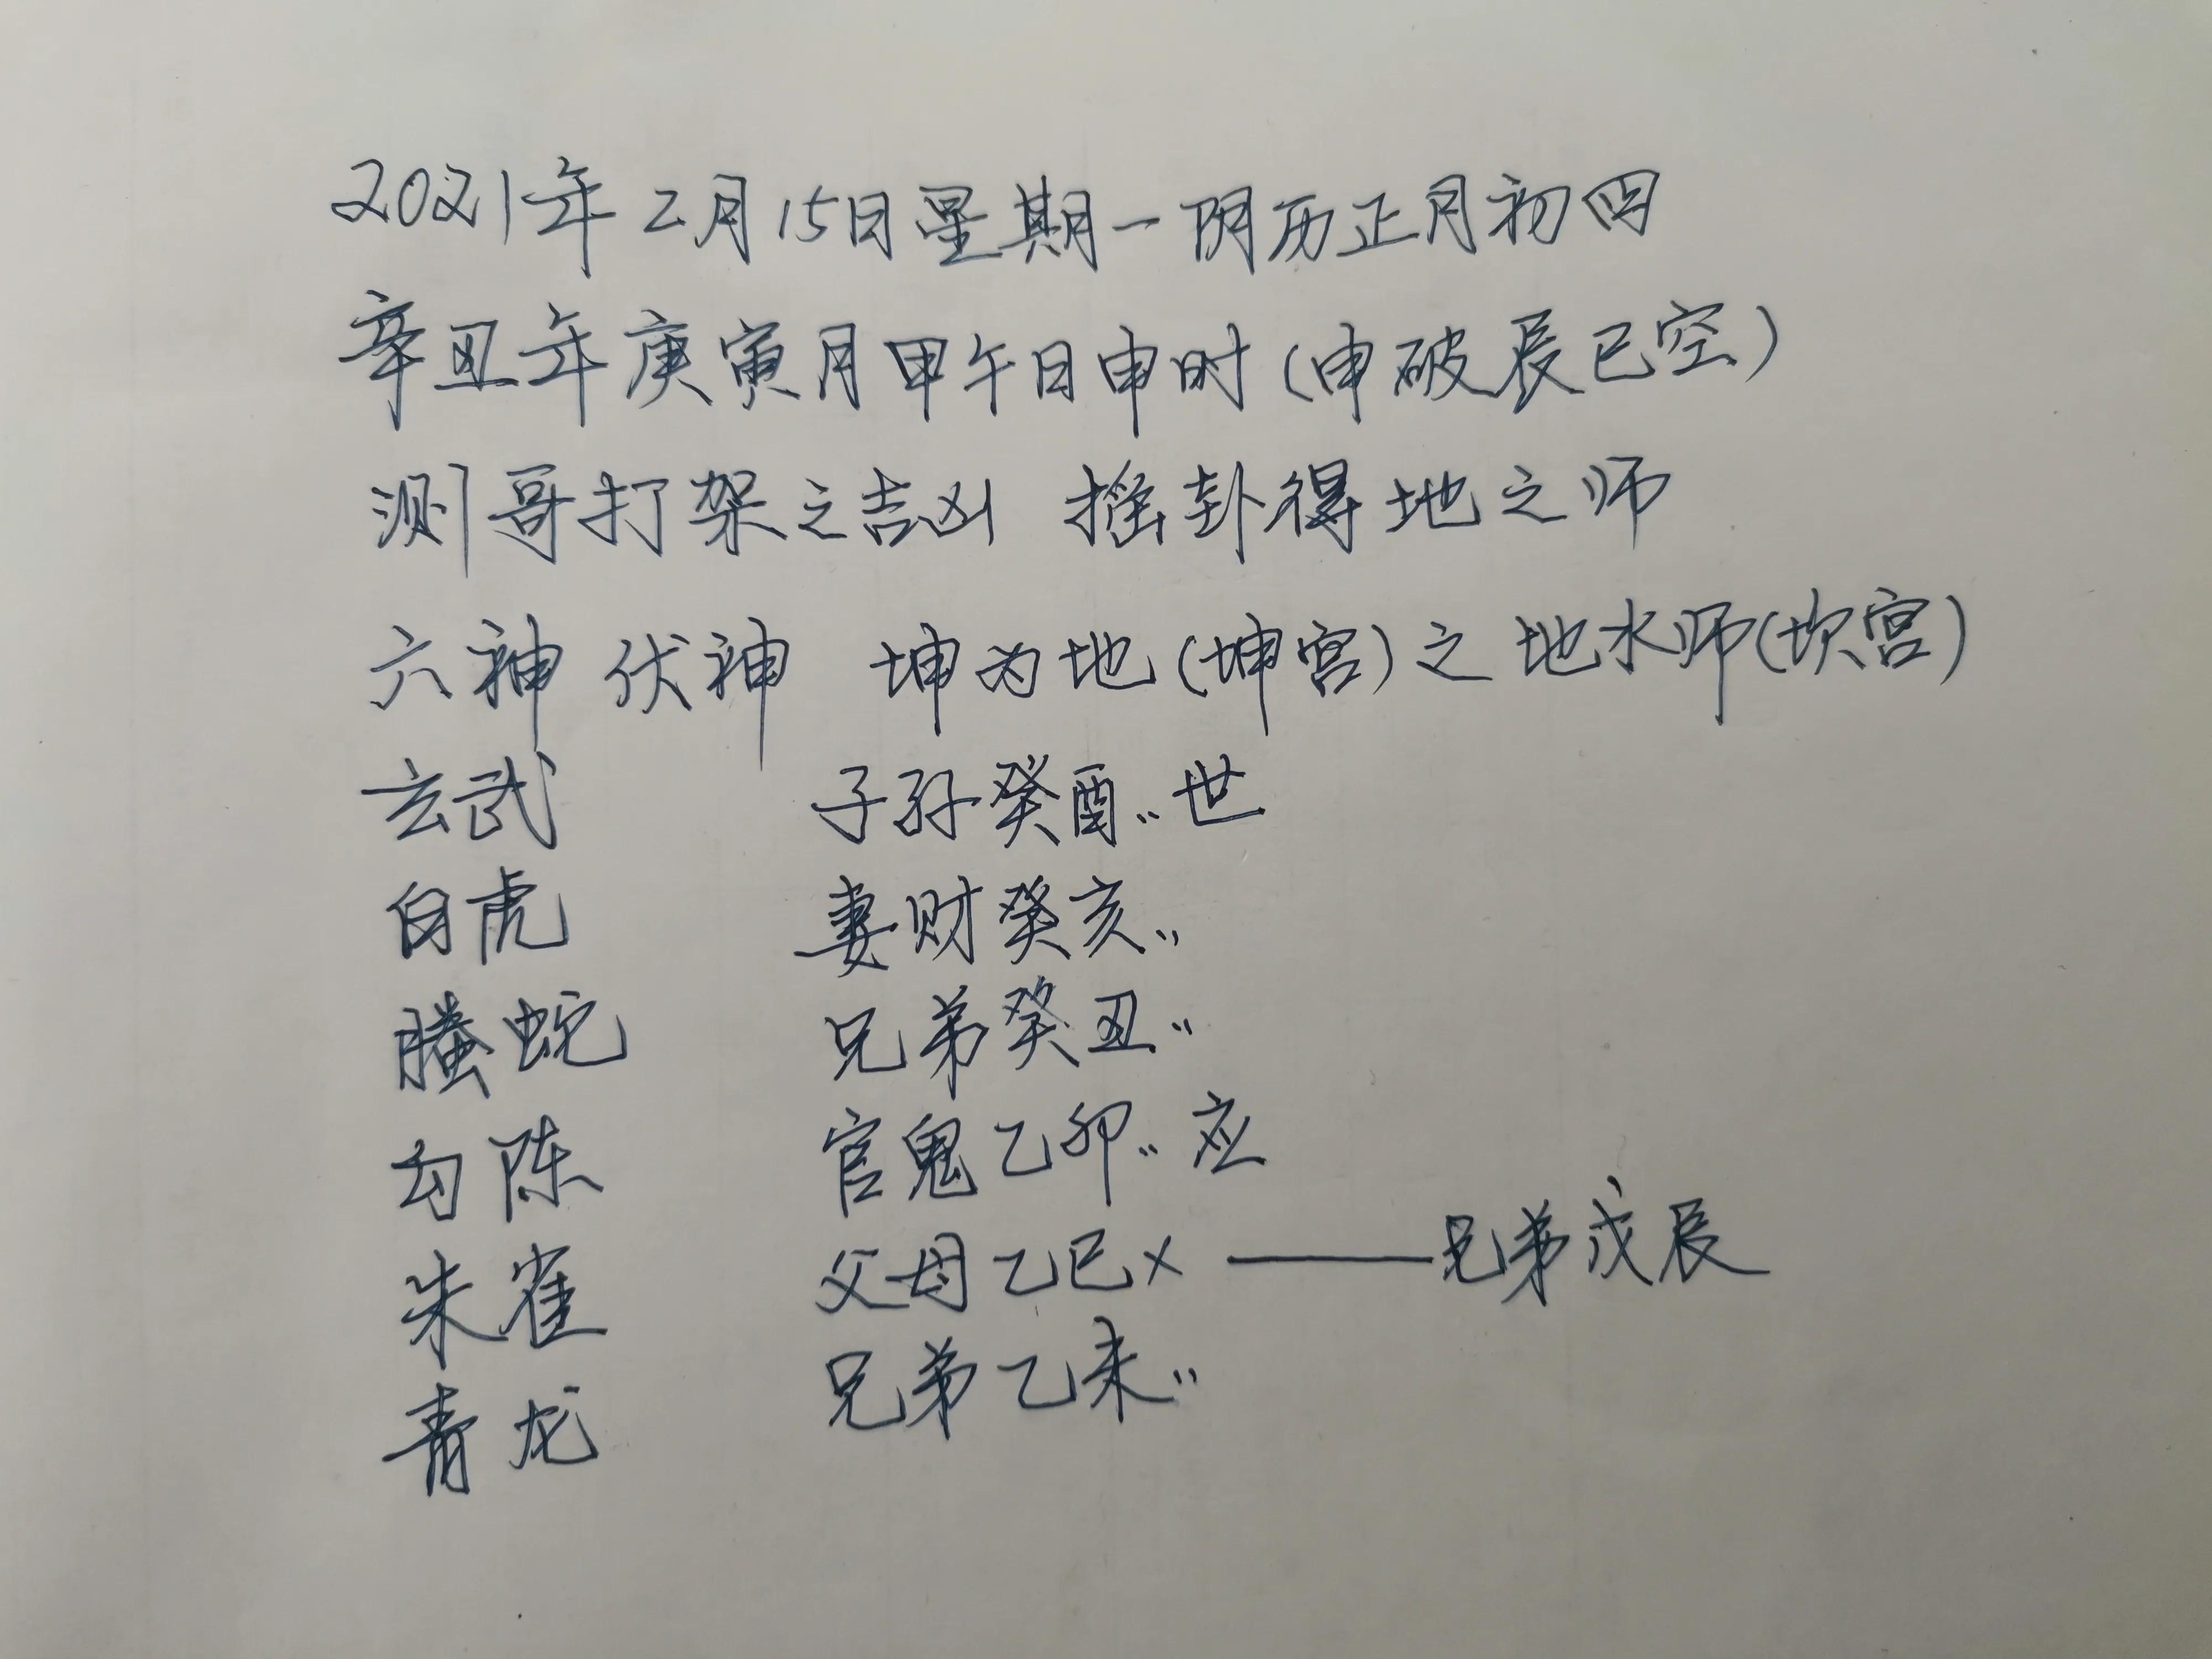 2021年2月15日星期一阴历正月初四
辛丑年庚寅月甲午日申时(申破辰巳空)
测哥打架之吉凶 摇卦得地之师
六神 伏神 坤为地(坤宫)之地水师(坎宫)
玄武 子孙癸酉‥世
白虎 妻财癸亥‥
螣蛇 兄弟癸丑‥
勾陈 官鬼乙卯‥应
朱雀 父母乙巳×——兄弟戊辰
青龙 兄弟乙未‥